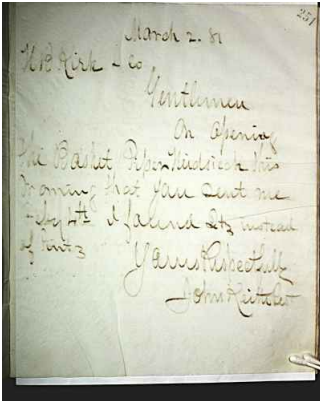 251
March 2. 81
H B Kirk & Co
Gentlemen
On Opening
the Basket Piper Hiedsieck this
morning that you sent me
Feby 4th I found Qts instead
of Pints
Yours Respectfully
John